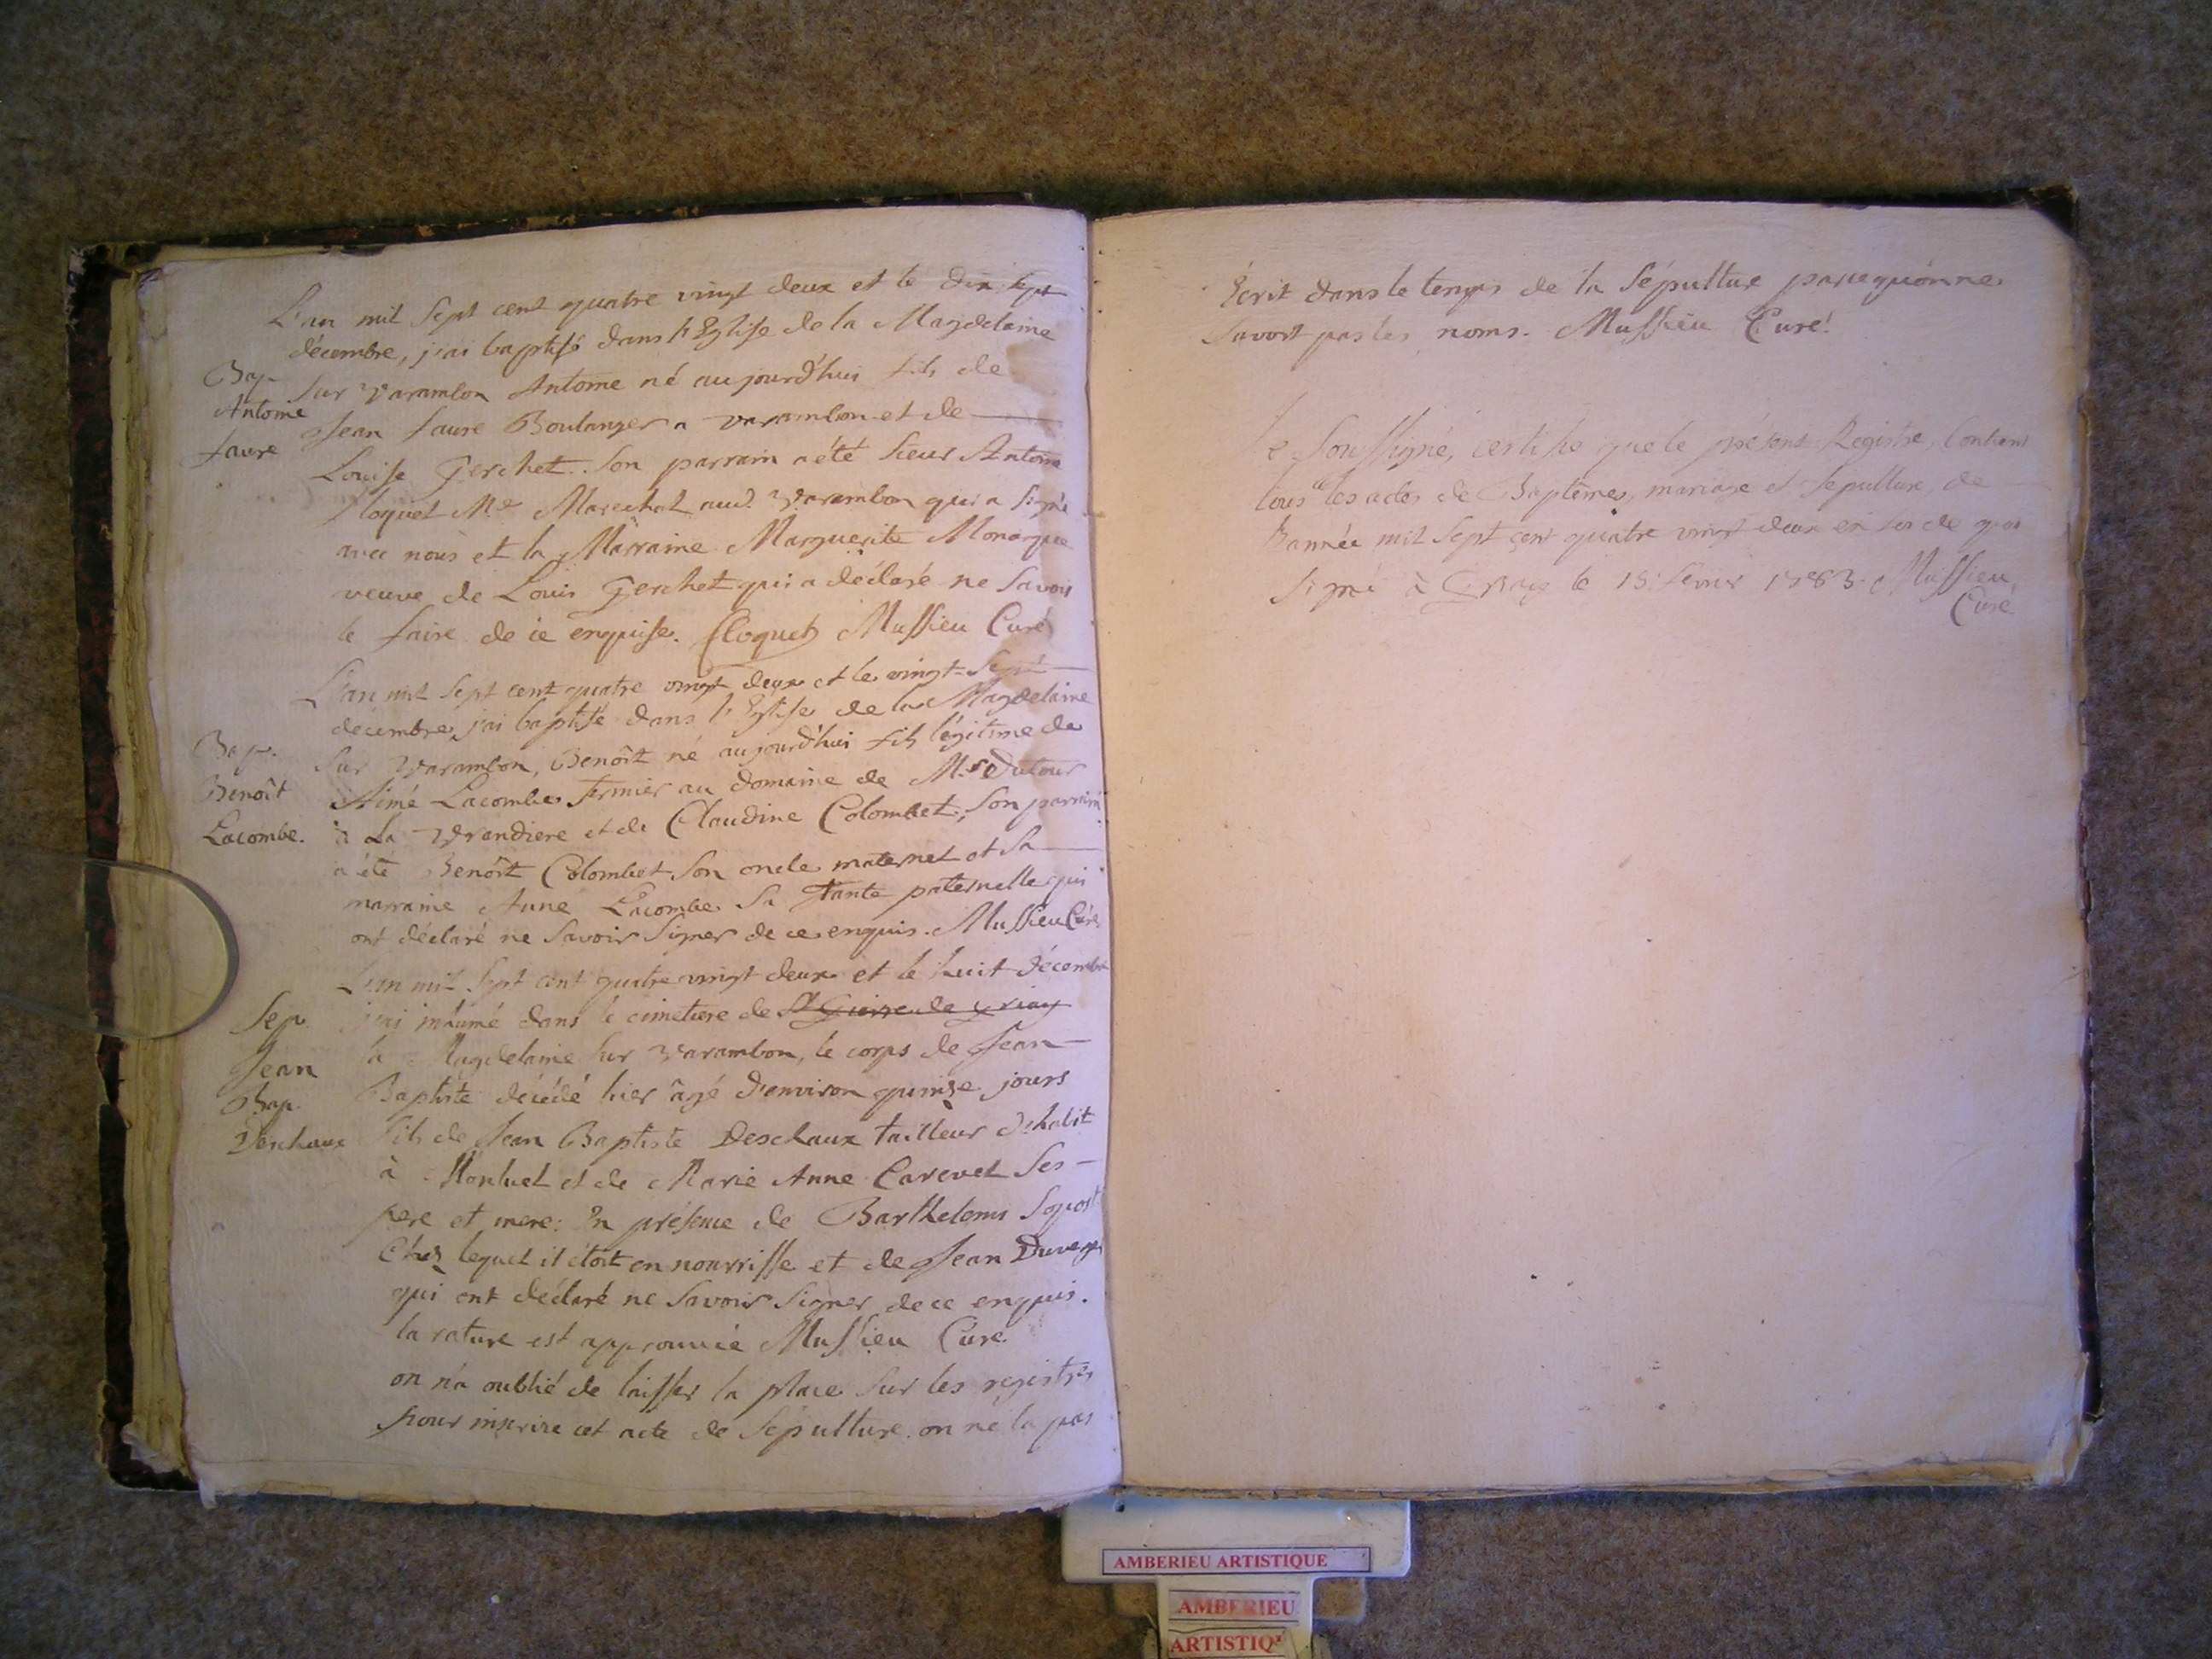 L'an mil Sept cent quatre vingt deux et le dix sept
décembre, j'ai baptisé dans l'Eglise de la Magdelaine
Sur Varambon Antoine né aujourd'hui fils de
Jean faure Boulanger a varambon et de
Louise Gerchet. Son parrain a été sieur Antoine
Cloquet Md Marechal aud. Varambon qui a signé
avec nous et la Marraine Marguerite Monarque
veuve de Louis Gerchet qui a déclaré ne Savoir
le faire de ce enquise. Cloquet Mussieu Curé
Bap.
Antoine
faure
L'an mil Sept cent quatre vingt deux et le vingt-Sept
decembre, j'ai baptisé dans l'Eglise de la Magdelaine
Sur Varambon, Benoît né aujourd'hui fils légitime de
Aimé Lacombe fermier au domaine de Mr Dutour
à La Verandiere et de Claudine Colombet; Son parrain
a été Benoît Colombet Son oncle maternel et Sa
marraine Anne Lacombe Sa Tante paternelle qui
ont déclaré ne Savoir Signer de ce enquis. Mussieu Curé
Bap.
Benoît
Lacombe.
L'an mil Sept cent quatre vingt deux et le huit décembre
j'ai inhumé dans le cimetiere de St Pierre de Priay
la Magdelaine Sur Varambon, le corps de Jean
Baptiste décédé hier âgé d'environ quinze jours
fils de Jean Baptiste Deschaux tailleur d'habit
à Montuel et de Marie Anne Carevet Ses
pere et mere: En présence de Barthelemi
Chez lequel il étoit en nourrisse et de Jean
qui ont déclaré ne Savoir Signer de ce enquis.
la rature est approuvée Mussieu Curé
on n'a oublié de laisser la place Sur les registres
pour inscrire cet acte de Sépulture. on ne la pas
Sep.
Jean
Bap.
Deschaux
Écrit dans le temps de la Sépulture parcequ'on ne
Savoit pas les noms. Mussieu Curé
Je Soussigné, certifie que le présent Registre Contient
tous les actes de Baptêmes, mariage et Sepulture, de
L'année mil Sept cent quatre vingt deux en foi de quoi
Signé à Priay le 15 fevrier 1783. Mussieu
Curé
AMBERIEU ARTISTIQUE
AMBERIEU
ARTISTIQ